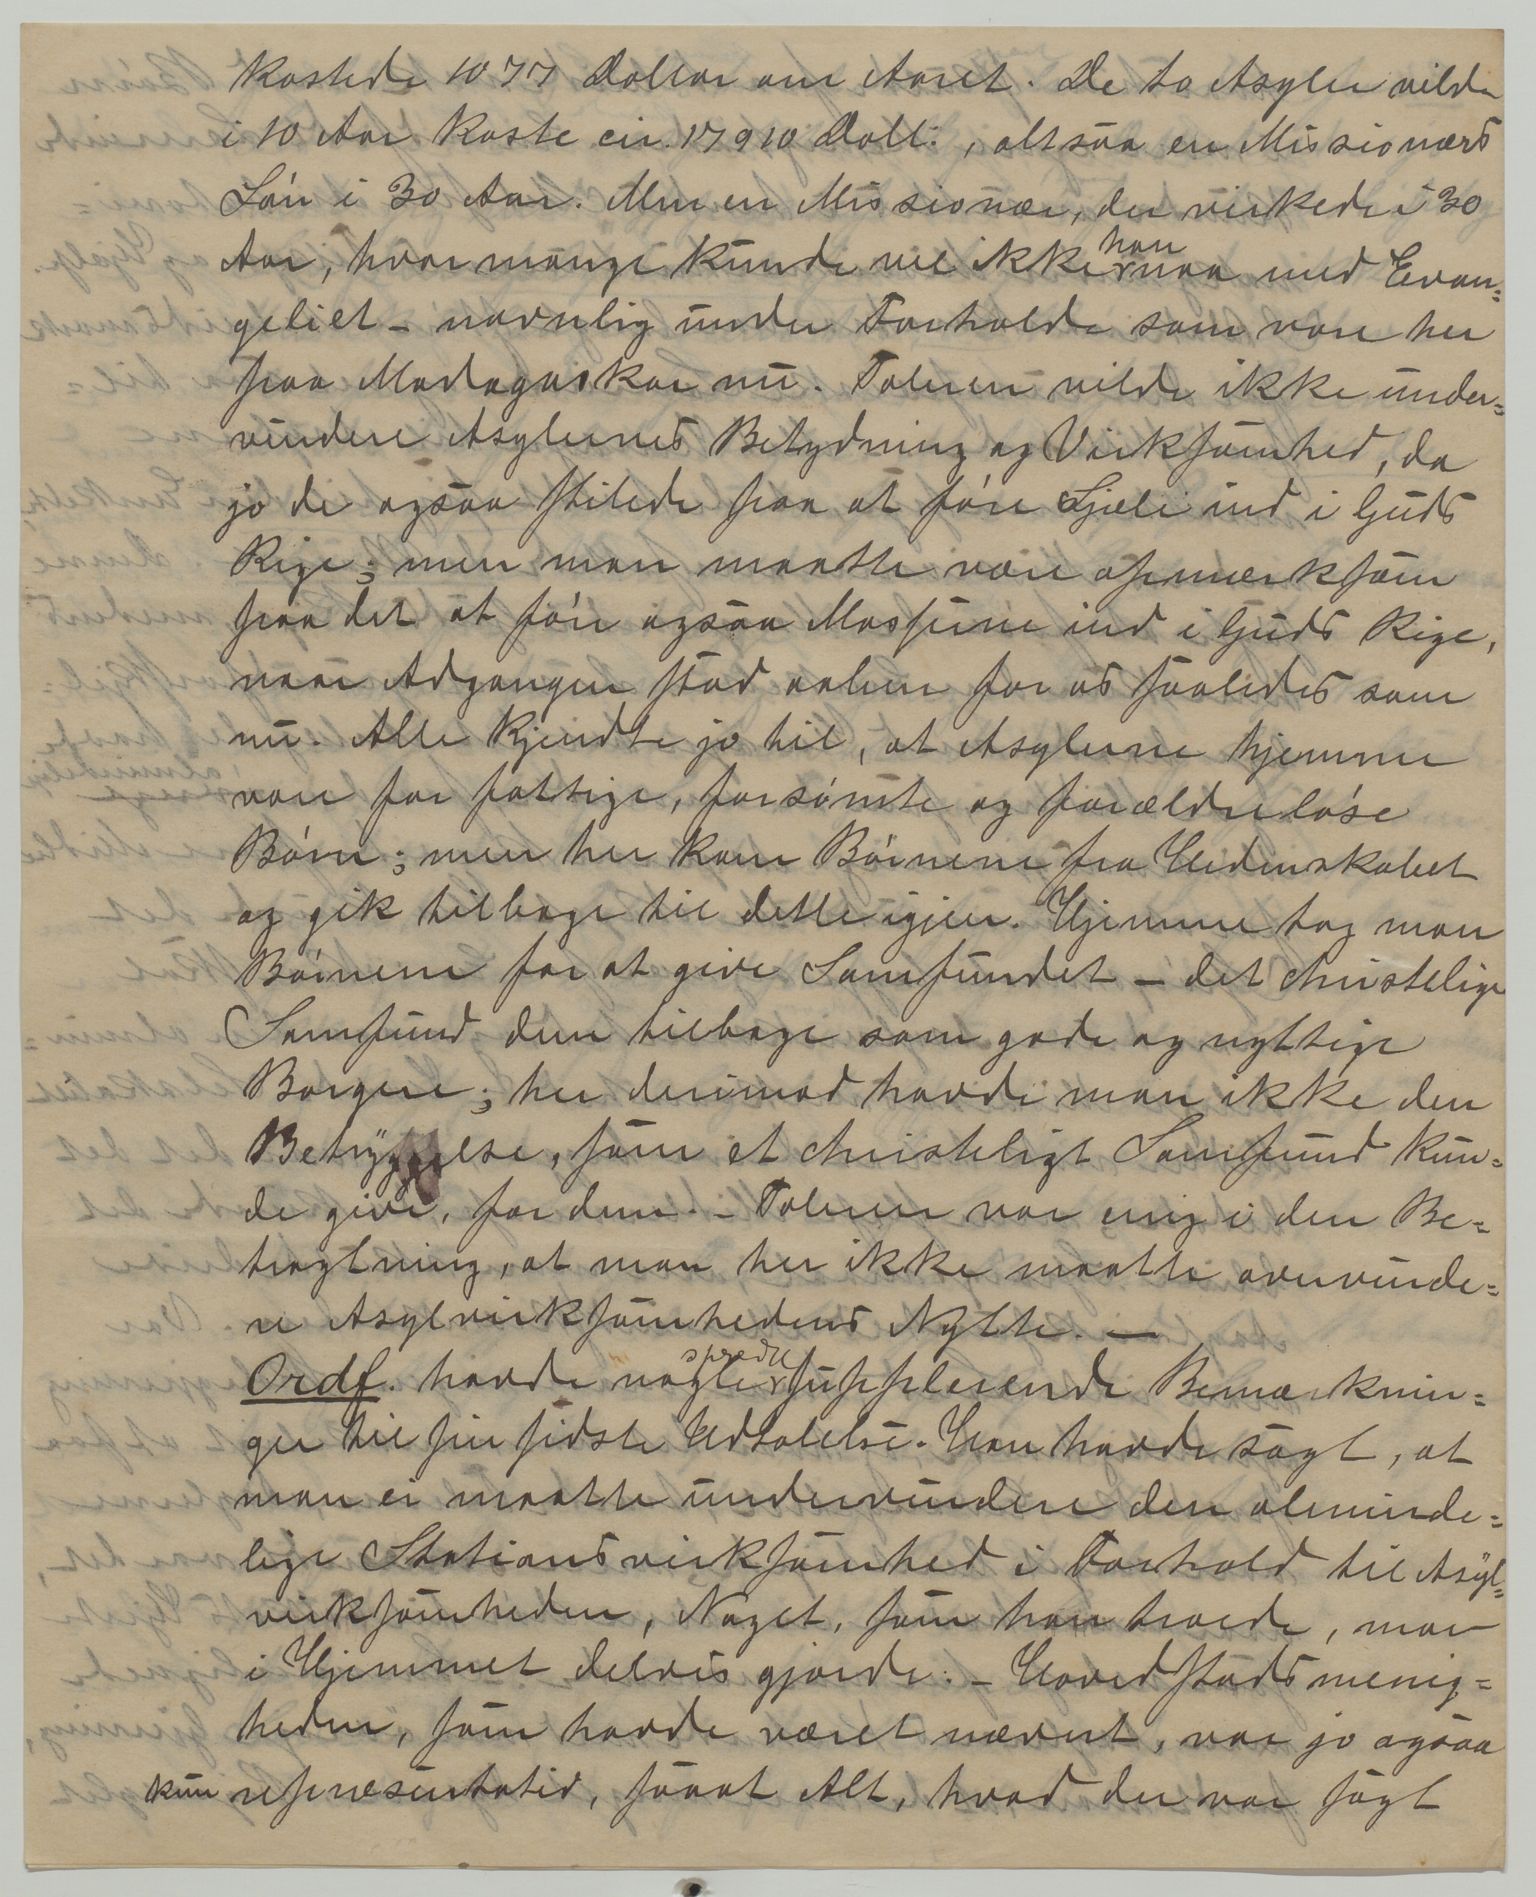 kostede 1077 Dollar om Aaret. De to Asyler vilde
i 10 Aar koste cir. 17910 Doll:, altsaa en Missionærs
Løn i 30 Aar. Men en Missionær, der virkede i 30
Aar, hvor mange kunde vel ikke han naa med Evan=
geliet – navnlig under Forholde som vare her
paa Madagaskar nu. Taleren vilde ikke under=
vurdere Asylernes Betydning og Virksomhed, da
jo de ogsaa stilede paa at føre Sjæle ind i Guds
Rige; men man maatte være opmærksom
paa det at føre ogsaa Masserne ind i Guds Rige,
naar Adgangen stod aaben for os saaledes som
nu. Alle kjendte jo til, at Asylerne hjemme
vare for fattige, forsømte og forældreløse
Børn; men her kom Børnene fra Hedenskabet
og gik tilbage til dette igjen. Hjemme tog man
Børnene for at give Samfundet – det christelige
Samfund dem tilbage som gode og nyttige
Borgere; her derimod havde man ikke den
Betryggelse, som et christeligt Samfund kun=
de give, for dem. – Taleren var enig i den Be=
tragtning, at man her ikke maatte overvurde=
re Asylvirksomhedens Nytte. —
Ordf. havde nogle spredte supplerende Bemærknin=
ger til sin sidste Udtalelse. Han havde sagt, at
man ei maatte undervurdere den alminde=
lige Stationsvirksomhed i Forhold til Asyl=
virksomheden, Noget, som han troede, man
i Hjemmet delvis gjorde. – Hovedstadsmenig=
heden, som havde været nævnt, var jo ogsaa
kun repræsentativ, saa at Alt, hvad der var sagt